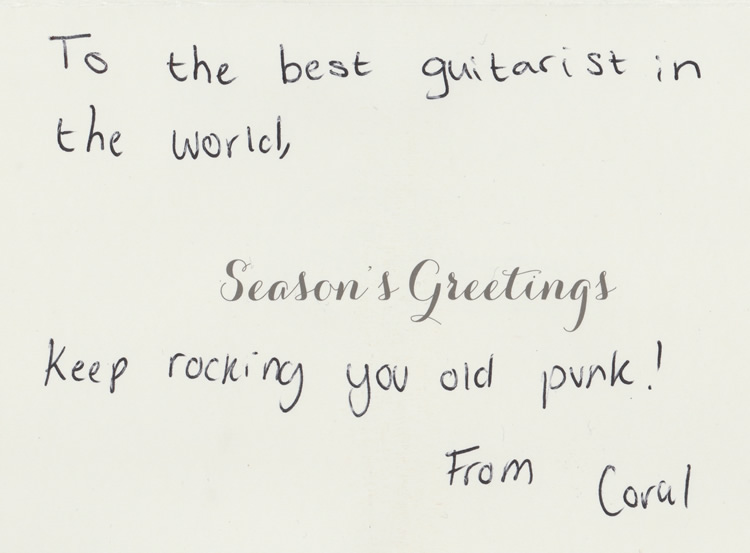 To the best guitarist in
the world,
Season's Greetings
Keep rocking you old punk!
From Coral